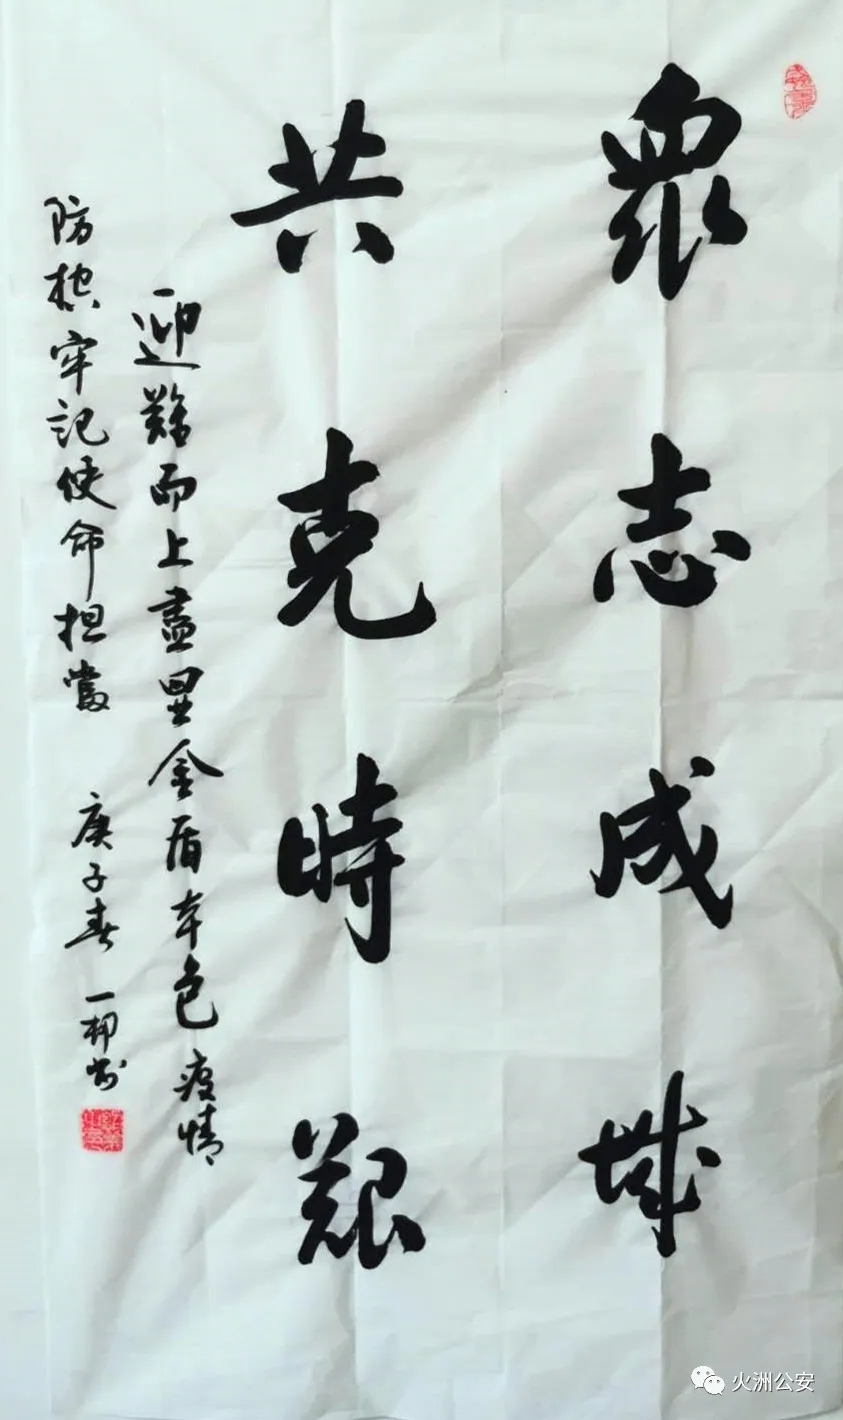 眾志成城
共克時艱
迎難而上盡显金盾本色疫情
防控牢記使命担當 庚子春 一柳书
火洲公安